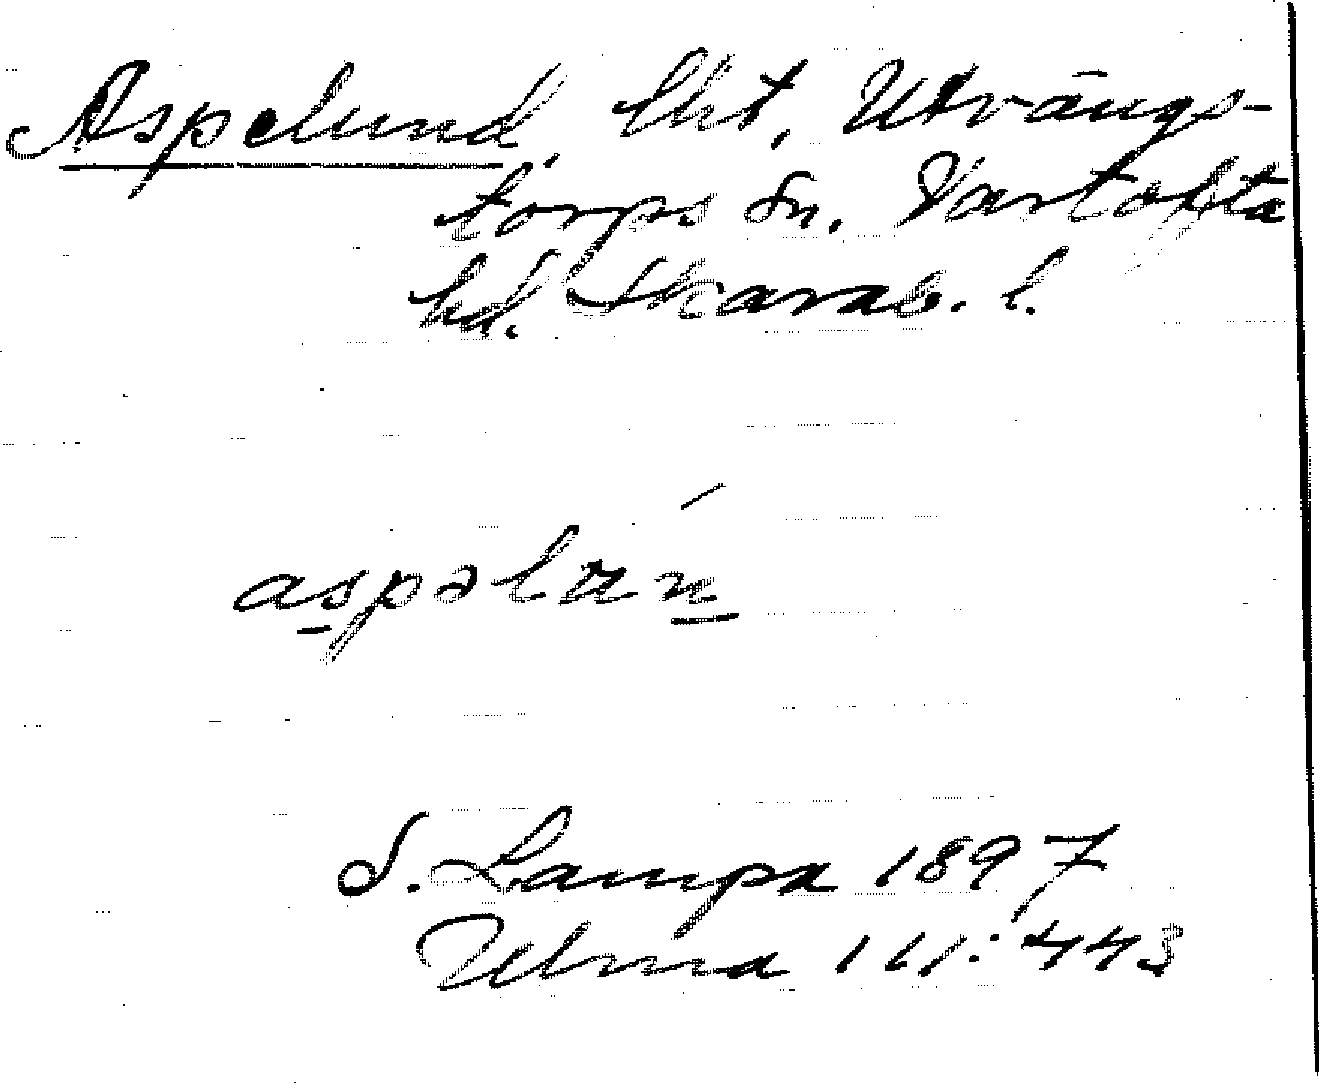 Aspelund, lht, Utvängs-
torps sn. Vartofta
hd. Skarab. l.
aspəlän
S. Lampa 1897
Ulma 111:443